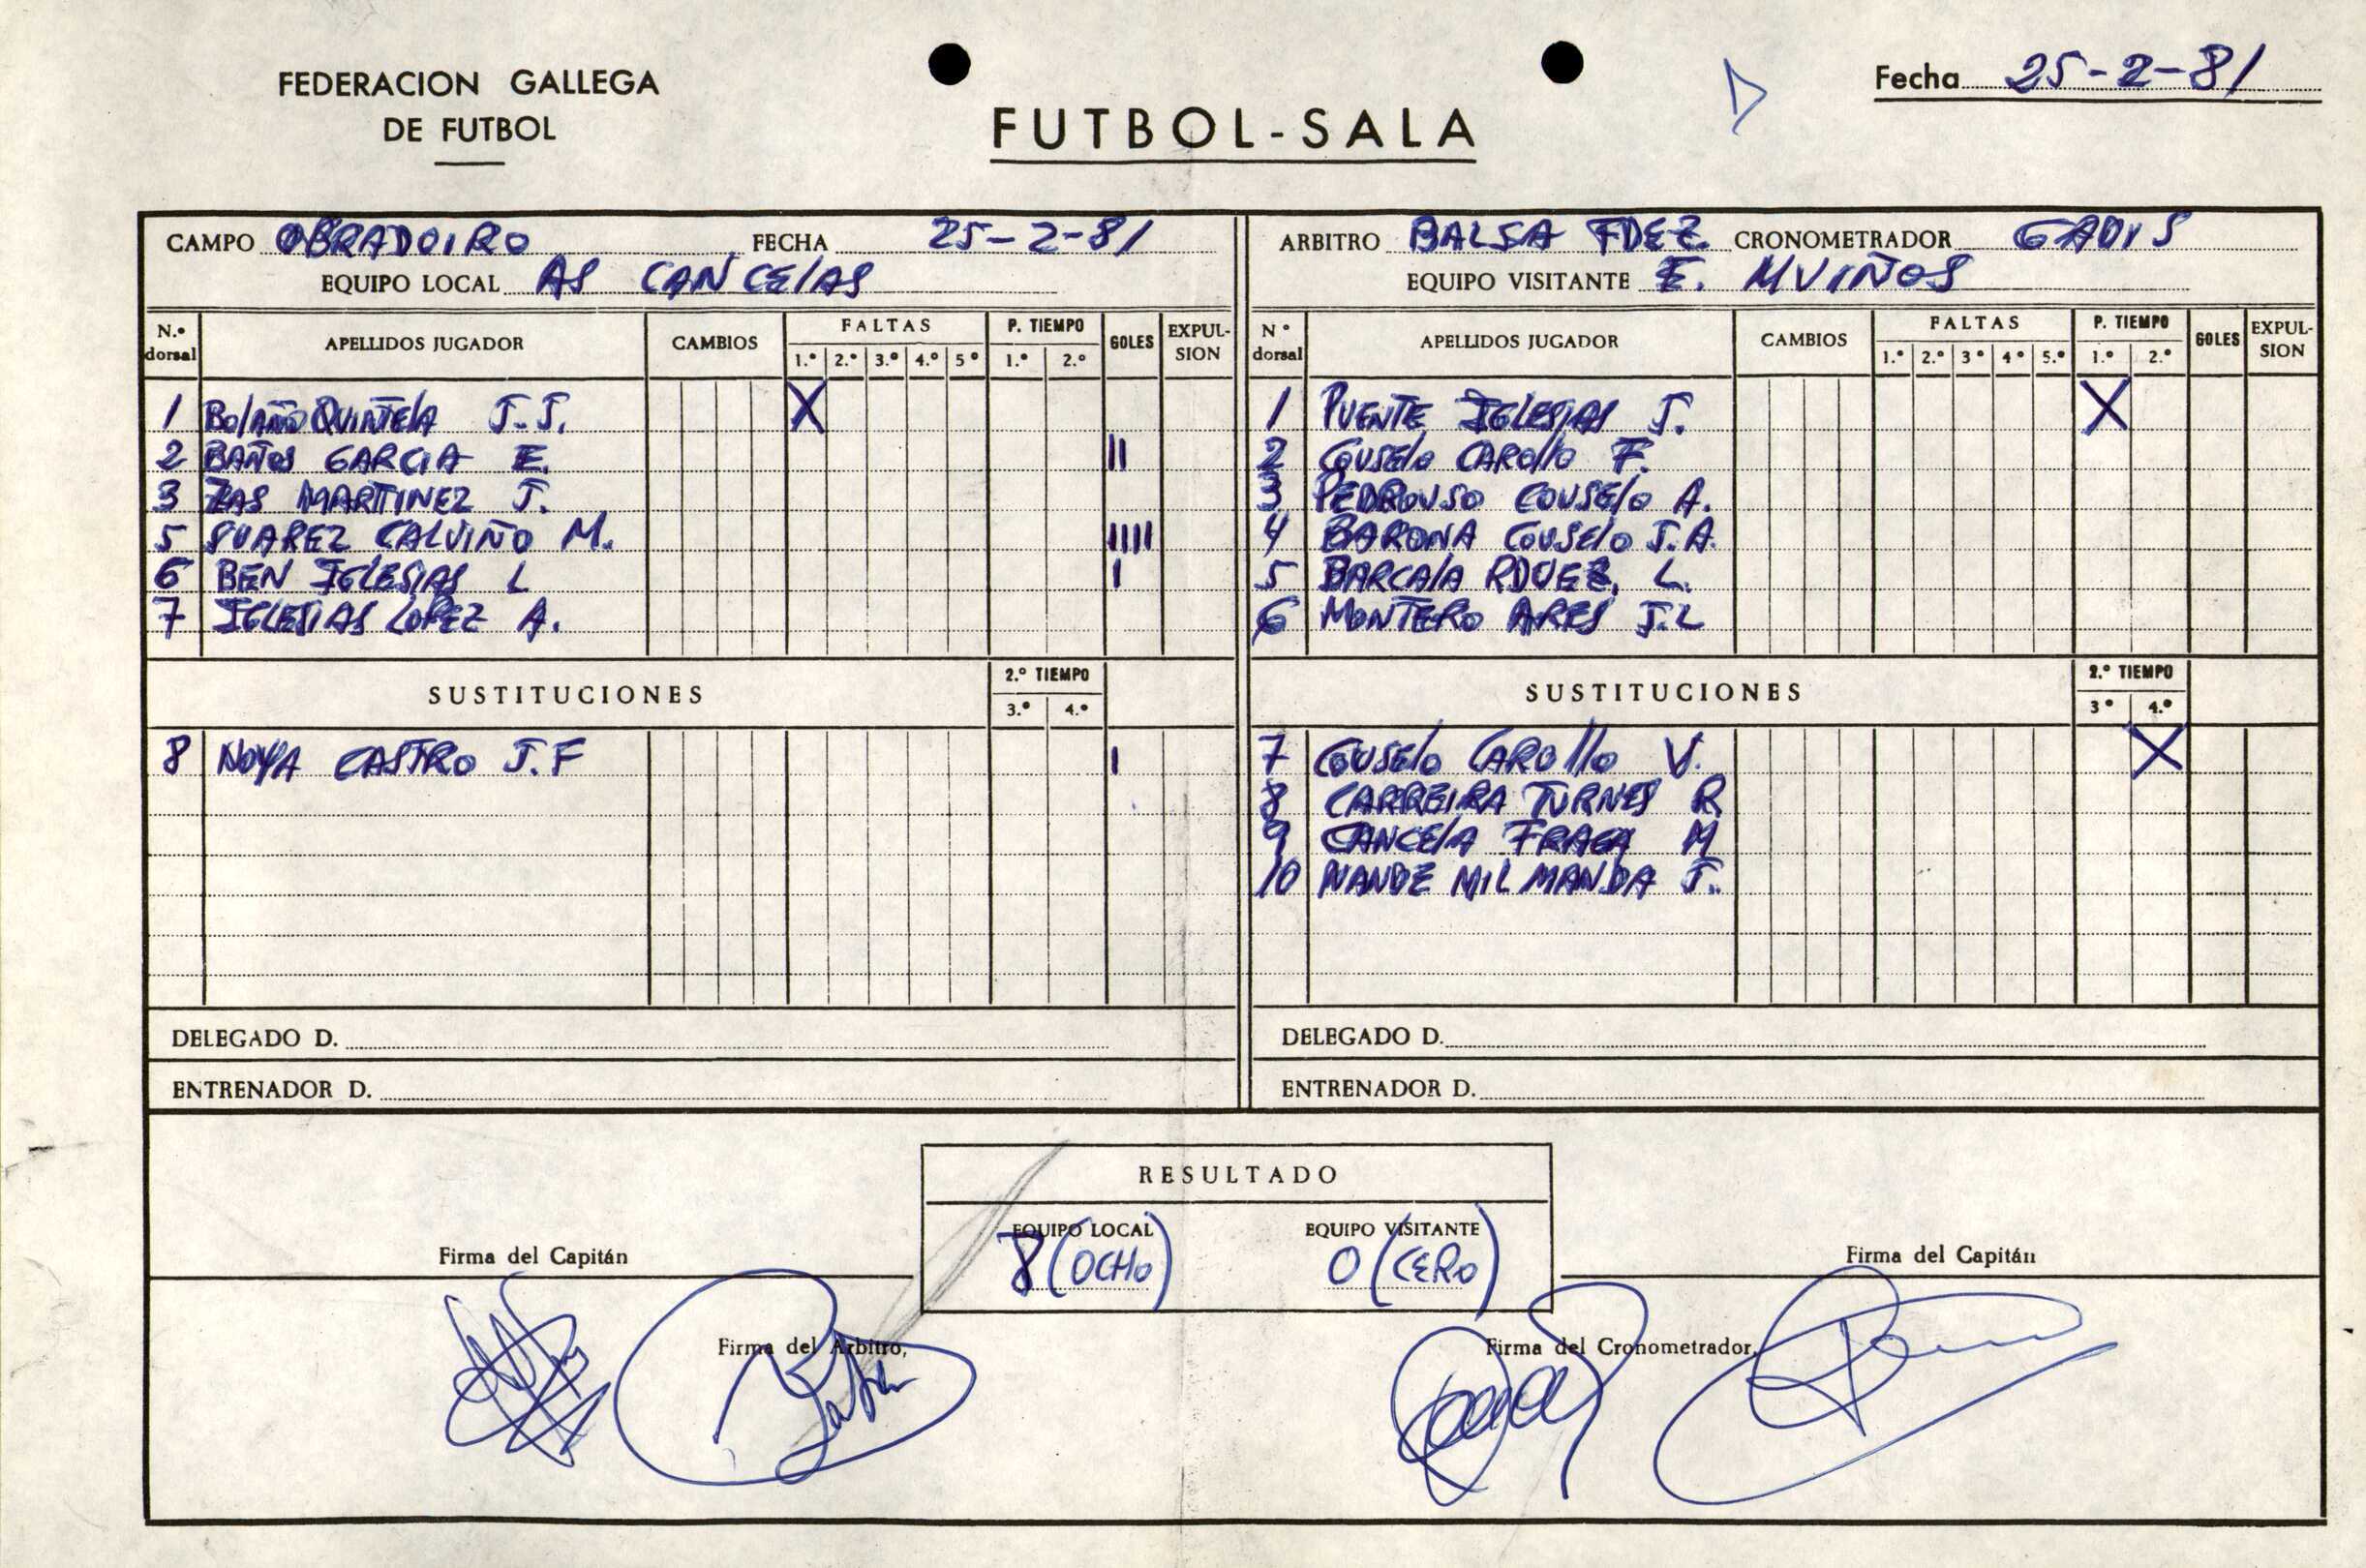 FEDERACION GALLEGA
DE FUTBOL
FUTBOL-SALA
Fecha 25-2-81
CAMPO OBRADOIRO FECHA 25-2-81
EQUIPO LOCAL AS CANCELAS
N.º dorsal APELLIDOS JUGADOR CAMBIOS FALTAS 1.º 2.º 3.º 4.º 5º P. TIEMPO 1.º 2.º GOLES EXPUL-SION
1 BOLAÑO QUINTELA J.J. X
2 BAÑOS GARCIA E. II
3 ZAS MARTINEZ J.
5 SUAREZ CALVIÑO M. IIII
6 BEN IGLESIAS L I
7 IGLESIAS LOPEZ A.
SUSTITUCIONES 2.º TIEMPO 3.º 4.º
8 NOYA CASTRO J.F I
DELEGADO D.
ENTRENADOR D.
ARBITRO BALSA FDEZ. CRONOMETRADOR GADIS
EQUIPO VISITANTE E. MUIÑOS
Nº dorsal APELLIDOS JUGADOR CAMBIOS FALTAS 1.º 2.º 3º 4º 5.º P. TIEMPO 1.º 2.º GOLES EXPUL-SION
1 PUENTE IGLESIAS J. X
2 COUSELO CAROLLO F.
3 PEDROUSO COUSELO A.
4 BARONA COUSELO J.A.
5 BARCALA RDUEZ. L.
6 MONTERO ARES J.L
SUSTITUCIONES 2.º TIEMPO 3º 4.º
7 COUSELO CAROLLO V. X
8 CARREIRA TURNES R
9 CANCELA FRAGA M
10 NANDE MILMANDA J.
DELEGADO D.
ENTRENADOR D.
RESULTADO
EQUIPO LOCAL EQUIPO VISITANTE
8 (OCHO) 0 (CERO)
Firma del Capitán
Firma del Arbitro,
Firma del Capitán
Firma del Cronometrador,